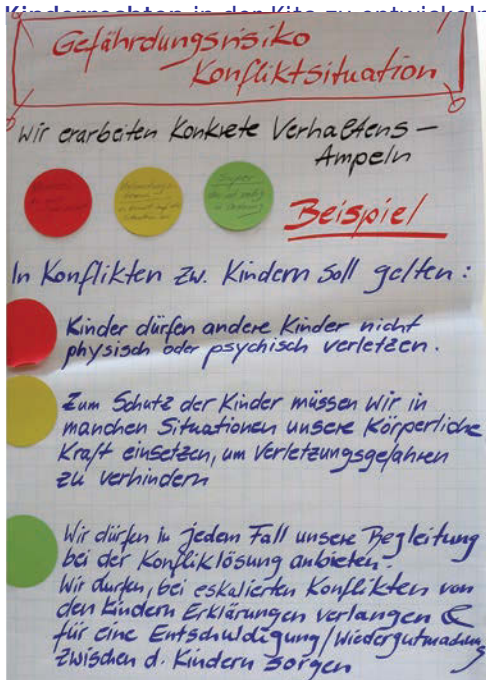 Kinderrechten in der Kita zu entwickeln
Gefährdungsrisiko
Konfliktsituation
Wir erarbeiten Konkrete Verhaltens-
Ampeln
Super
Beispiel
In Konflikten zw. Kindern soll gelten:
Kinder dürfen andere Kinder nicht
physisch oder psychisch verletzen.
Zum Schutz der Kinder müssen wir in
manchen Situationen unsere Körperliche
Kraft einsetzen, um Verletzungsgefahren
zu verhindern
Wir dürfen in jedem Fall unsere Begleitung
bei der Konfliklösung anbieten.
Wir dürfen, bei eskalierten Konflikten von
den Kindern Erklärungen verlangen &
für eine Entschuldigung/Wiedergutmachung
zwischen d. Kindern sorgen